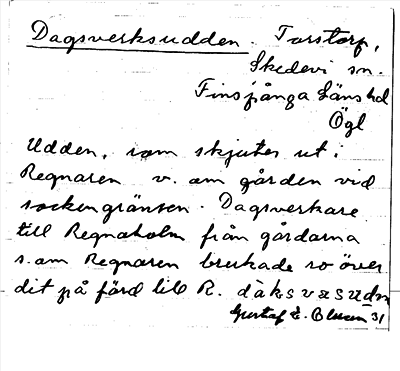 Dagsverksudden. Torstorp,
Skedevi sn.
Finspånga länshd
Ögl
Udden, som skjuter ut i
Regnaren v. om gården vid
sockengränsen. Dagsverkare
till Regnaholm från gårdarna
s. om Regnaren brukade ro över
dit på färd till R. dàksvæsudn
Gustaf E. Blman 31